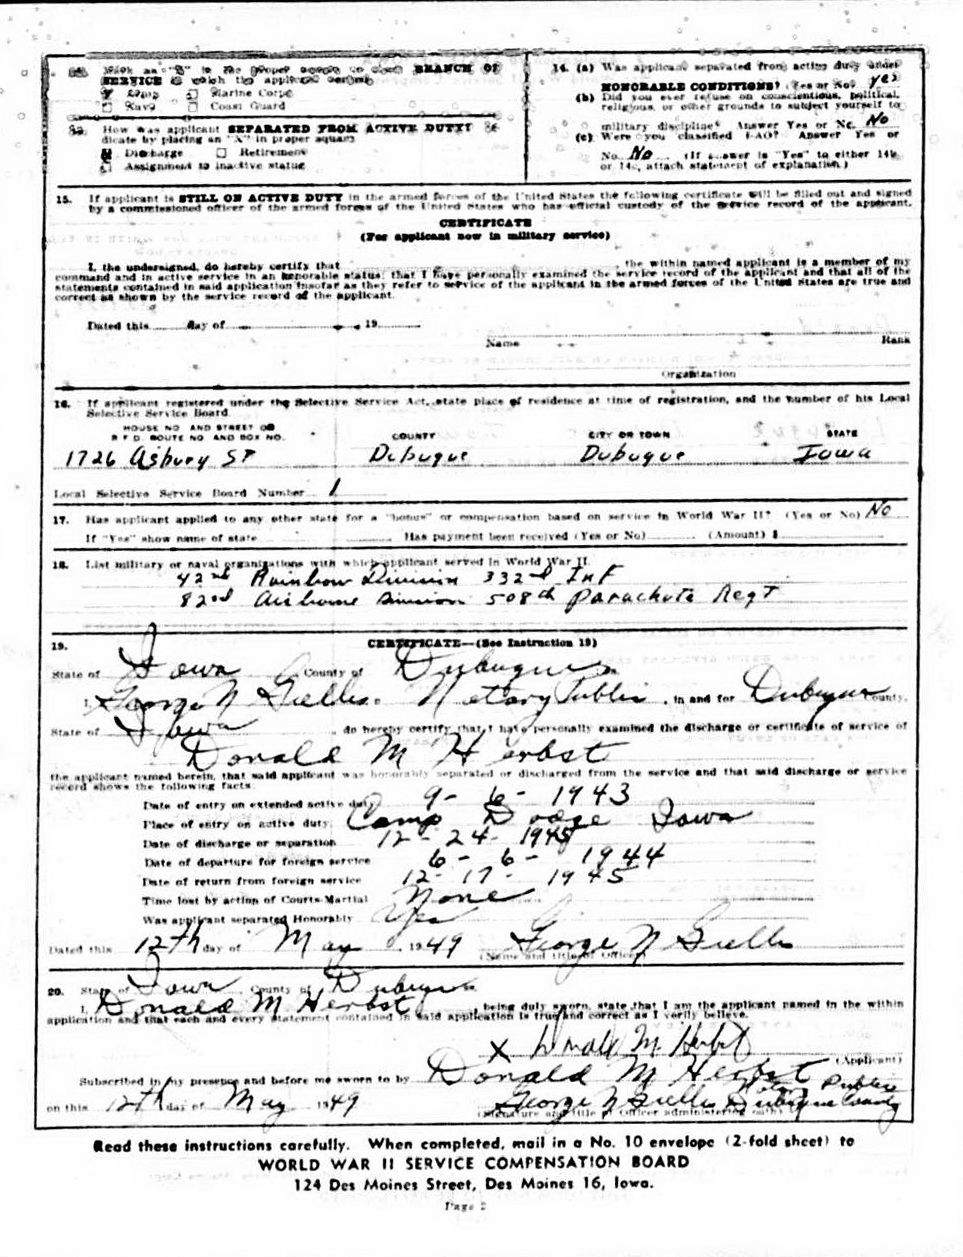 BRANCH OF
SERVICE in which the applicant served
Army Marine Corps
Navy Coast Guard
How was applicant SEPARATED FROM ACTIVE DUTY? In-
dicate by placing an "X" in proper square
Discharge Retirement
Assignment to inactive status
14. (a) Was applicant separated from active duty under
HONORABLE CONDITIONS? (Yes or No) Yes
(b) Did you ever refuse on conscientious, political,
religious, or other grounds to subject yourself to
military discipline? Answer Yes or No. No
(c) Were you classified 1-AO? Answer Yes or
No No (If answer is "Yes" to either 14b
or 14c, attach statement of explanation.)
15. If applicant is STILL ON ACTIVE DUTY in the armed forces of the United States the following certificate will be filled out and signed
by a commissioned officer of the armed forces of the United States who has official custody of the service record of the applicant.
CERTIFICATE
(For applicant now in military service)
I, the undersigned, do hereby certify that the within named applicant is a member of my
command and in active service in an honorable status; that I have personally examined the service record of the applicant and that all of the
statements contained in said application insofar as they refer to service of the applicant in the armed forces of the United States are true and
correct as shown by the service record of the applicant.
Dated this day of , 19
Name Rank
Organization
16. If applicant registered under the Selective Service Act, state place of residence at time of registration, and the number of his Local
Selective Service Board.
HOUSE NO. AND STREET OR
R F D. ROUTE NO AND BOX NO. COUNTY CITY OR TOWN STATE
1726 Asbury St Dubuque Dubuque Iowa
Local Selective Service Board Number 1
17. Has applicant applied to any other state for a "bonus" or compensation based on service in World War II? (Yes or No) No
If "Yes" show name of state Has payment been received (Yes or No) (Amount) $
18. List military or naval organizations with which applicant served in World War II.
42nd Rainbow Division 332nd Inf
82nd Airborne Division 508th Parachute Regt
19. CERTIFICATE—(See Instruction 19)
State of Iowa County of Dubuque
I, George N Notary Public, in and for Dubuque County,
State of Iowa, do hereby certify that I have personally examined the discharge or certificate of service of
Donald M Herbst
the applicant named herein, that said applicant was honorably separated or discharged from the service and that said discharge or service
record shows the following facts:
Date of entry on extended active duty 9-6-1943
Place of entry on active duty: Camp Dodge Iowa
Date of discharge or separation 12-24-1945
Date of departure for foreign service 6-6-1944
Date of return from foreign service 12-17-1945
Time lost by action of Courts-Martial None
Was applicant separated Honorably Yes
Dated this 12th day of May 1949 George N
(Name and title of Officer)
20. State of Iowa, County of Dubuque
I, Donald M Herbst, being duly sworn, state that I am the applicant named in the within
application and that each and every statement contained in said application is true and correct as I verily believe.
X Donald M. Herbst
(Applicant)
Subscribed in my presence and before me sworn to by Donald M Herbst
on this 12th day of May 1949 George N Notary Public Dubuque County
(Signature and title of Officer administering oath)
Read these instructions carefully. When completed, mail in a No. 10 envelope (2-fold sheet) to
WORLD WAR II SERVICE COMPENSATION BOARD
124 Des Moines Street, Des Moines 16, Iowa.
Page 2